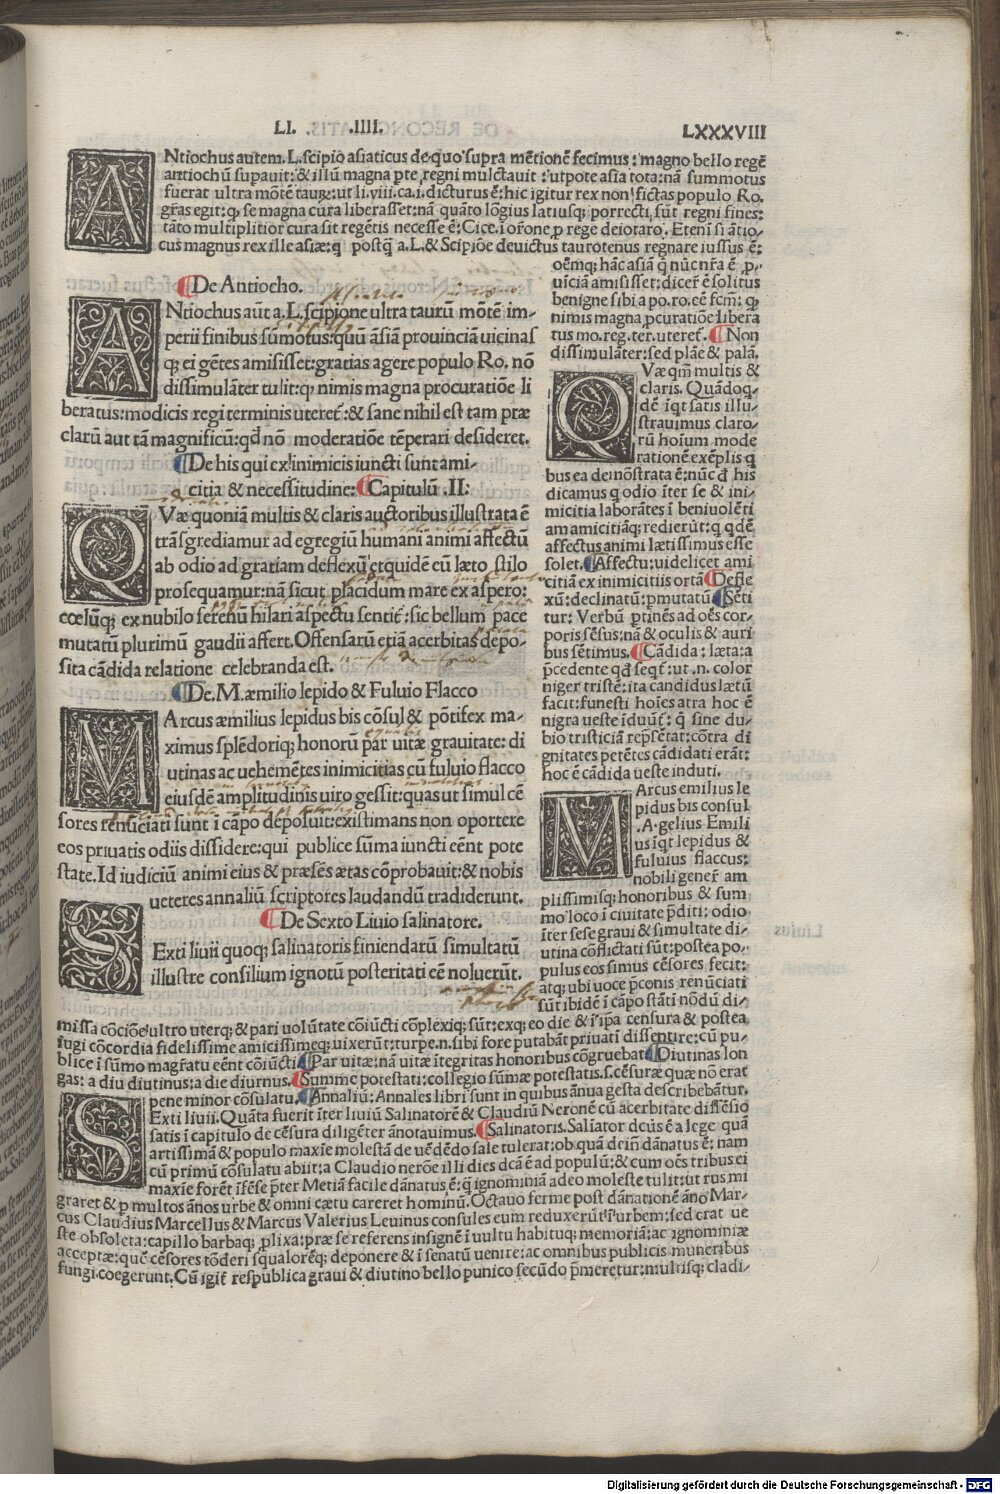 LI. .IIII. LXXXVIII
ANtiochus autem.L.scipio asiaticus de quo supra mētionē fecimus: magno bello regē
antiochū supauit:& illū magna pte regni mulctauit: utpote asia tota: nā summotus
fuerat ultra mōtē taurę: ut li.viii.ca.i.dicturus ē: hic igitur rex non fictas populo Ro.
grās egit: q; se magna cura liberasset: nā quāto lōgius latiusq; porrecti sūt regni fines:
tāto multiplitior cura sit regētis necesse ē: Cice. i orōne p rege deiotaro. Eteni si ātio-
cus magnus rex ille asiæ: q postq̄ a.L.& Scipiōe deuictus taurotenus regnare iussus ē:
oēmq; hāc asiā q̄ nūc nr̄a ē p̱-
uīciā amisisset: dicer̄ ē solitus
benigne sibi a po.ro.eē fcm̄: q;
nimis magna p̱curatiōe libera
tus mo.reg.ter.uteret̄. Non
dissimulāter: sed plāe & palā.
De Antiocho.
ANtiochus aūt a.L.scipione ultra taurū mōtē im-
perii finibus sūmotus: quū āsiā prouinciā uicinas
q; ei gētes amisisset: gratias agere populo Ro. nō
dissimulāter tulit: q; nimis magna procuratiōe li
beratus: modicis regi terminis uteret̄:& sane nihil est tam præ
clarū aut tā magnificū: qd̄ nō moderatiōe tēperari desideret.
De his qui ex inimicis iuncti sunt ami-
citia & necessitudine: Capitulū .II:
QVæ quoniā multis & claris auctoribus illustrata ē
trāsgrediamur ad egregiū humani animi affectū
ab odio ad gratiam deflexū et quidē eū læto stilo
prosequamur: nā sicut placidum mare ex aspero:
cœlūq; ex nubilo serenū hilari aspectu sentit̄: sic bellum pace
mutatū plurimū gaudii affert. Offensarū etiā acerbitas depo-
sita cādida relatione celebranda est.
De.M.æmilio lepido & Fuluio Flacco
MArcus æmilius lepidus bis cōsul & pōtifex ma-
ximus splēdoriq; honorū par uitæ grauitate: di
utinas ac uehemētes inimicitias cū fuluio flacco
eiusdē amplitudinis uiro gessit: quas ut simul cē
sores renūciati sunt ī cāpo deposuit: existimans non oportere
eos priuatis odiis dissidere: qui publice sūma iuncti eēnt pote
state. Id iudiciū animi eius & præsēs ætas cōprobauit:& nobis
ueteres annaliū scriptores laudandū tradiderunt.
De Sexto Liuio salinatore.
SExti liuii quoq; salinatoris finiendarū simultatū
illustre consilium ignotū posteritati eē noluerūt.
QVæ qm̄ multis &
claris. Quādoq-
dē iqt satis illu-
strauimus claro-
rū hoīum mode
rationē exēplis q
bus ea demōstrata ē: nūc d̄ his
dicamus q odio īter se & ini-
micitia laborātes ī beniuolēti
am amicitiāq; redierūt: q qdē
affectus animi lætissimus esse
solet. Affectu: uidelicet ami
citiā ex inimicitiis ortā Defle
xū: declinatū: p̱mutatū Sēti
tur: Verbū p̄tinēs ad oēs cor-
poris sēsus: nā & oculis & auri
bus sētimus. Cādida: læta: a
p̄cedente qd̄ seqt̄: ut .n. color
niger tristē: ita candidus lætū
facit: funesti hoīes atra hoc ē
nigra ueste īduūt̄: q̄ sine du-
bio tristiciā rep̄sētat: cōtra di
gnitates petētes cādidati erāt:
hoc ē cādida ueste induti.
MArcus emilius le
pidus bis consul
.A.gelius Emili
us iqt lepidus &
fuluius flaccus:
nobili gener̄ am
plissimisq; honoribus & sum
mo loco ī ciuitate p̄diti: odio
īter sese graui & simultate di-
utina cōflictati sūt: postea po-
pulus eos simus cēsores fecit:
atq; ubi uoce p̄conis renūciati
sūt ibidē ī cāpo stāti nōdū di-
missa cōcioē ultro uterq; & pari uolūtate cōiūcti cōplexiq; sūt: exq; eo die & ī ip̄a censura & postea
iugi cōcordia fidelissime amicissimeq; uixerūt: turpe.n.sibi fore putabāt priuatī dissentire: cū pu-
blice ī sūmo magr̄atu eēnt cōiūcti Par uitæ: nā uitæ ītegritas honoribus cōgruebat Diutinas lon
gas: a diu diutinus: a die diurnus. Summe potestati: collegio sūmæ potestatis.s.cēsuræ quæ nō erat
pene minor cōsulatu. Annaliū: Annales libri sunt in quibus ānua gesta describebātur.
SExti liuii. Quāta fuerit īter liuiū Salinatorē & Claudiū Neronē cū acerbitate dissēsio
satis ī capitulo de cēsura diligēter ānotauimus. Salinatoris. Saliator dcūs ē a lege quā
artissimā & populo maxīe molestā de uēdēdo sale tulerat: ob quā deīn dānatus ē: nam
cū primū cōsulatu abiit: a Claudio nerōe illi dies dcā ē ad populū:& cum oēs tribus ei
maxīe forēt īfēse p̄ter Metiā facile dānatus ē: q̄ ignominiā adeo moleste tulit: ut rus mi
graret & p̱ multos ānos urbe & omni cætu careret hominū. Octauo ferme post dānationē āno Mar-
cus Claudius Marcellus & Marcus Valerius Leuinus consules eum reduxerūt ī urbem: sed erat ue
ste obsoleta: capillo barbaq; p̱lixa: præ se referens insignē ī uultu habituq; memoriā: ac ignominiæ
acceptæ: quē cēsores tōderi squalorēq; deponere & ī senatū uenire: ac omnibus publicis muneribus
fungi coegerunt. Cū igit̄ respublica graui & diutino bello punico secūdo p̄meretur: multisq; cladi-
Digitalisierung gefördert durch die Deutsche Forschungsgemeinschaft - DFG